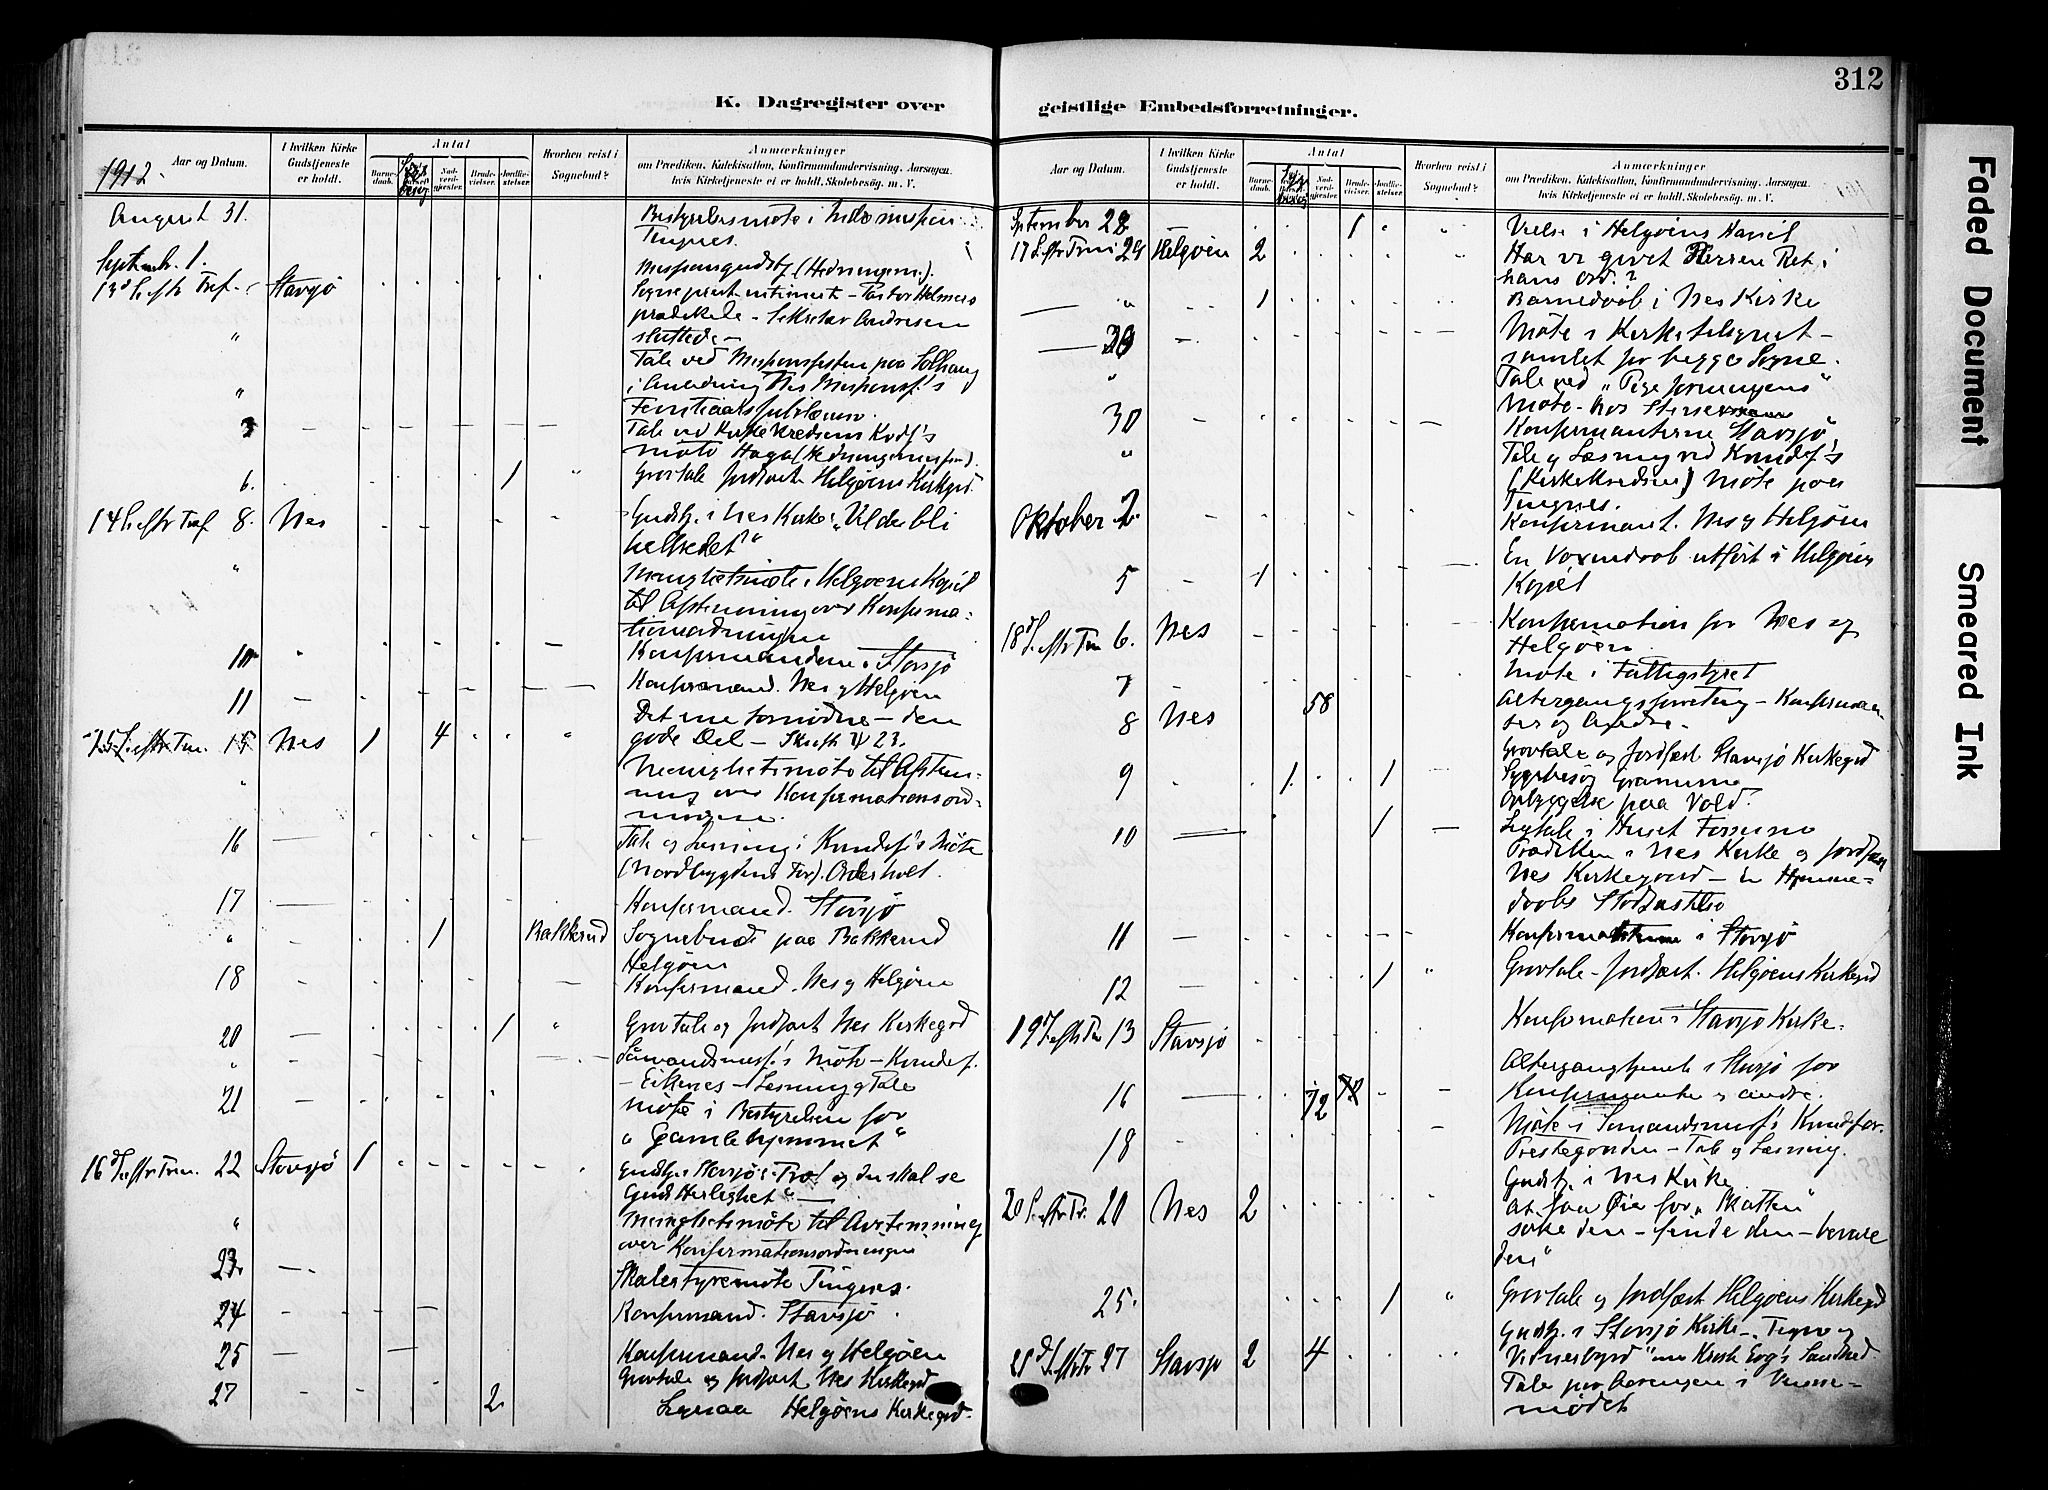 312
K. Dagregister over
geistlige Embedsforretninger.
Aar og Datum.
I hvilken Kirke
Gudstjeneste
er holdt.
Antal
Barne-
daab.
Nad-
verd-
gjester.
Brude-
vielser.
Jordfæ-
stelser.
Hvorhen reist i
Sognebud?
Anmærkninger
om Prædiken, Katekisation, Konfirmandundervisning, Aarsagen,
hvis Kirketjeneste ei er holdt, Skolebesøg, m. V.
1912.
August 31.
Bestyrelsesmöte i
Tingnes.
Septemb. 1.
13 S. eftr Tref. Stavsjö
Missionsgudstj. (Hedningem.).
Sogneprest - Pastor Holmers
prædikede - Sekretær Andresen
sluttede -
" Tale ved Missionsfesten paa Solhaug
" i Anledning Nes Missionsf.'s
3
Tale ved Kirkekredsens Kvdf's
möte Haga (Hedningemission).
6. 1 " Gravtale Jordfæst Helgöens Kirkegrd.
14 S. eftr Tref 8. Nes
Gudstj. i Nes Kirke "Vil du bli
helbredet?"
" Menighetsmöte i Helgöens Kapel
til Afstemning over Konfirma-
tionsordningen
10 Konfirmanderne i Stavsjö
11 Konfirmand. Nes og Helgöen
15 S. eftr Trin. 15 Nes 1 4 "
Det ene fornödne - den
gode Del - Skrift ψ 23.
" Menighetsmöte til Afstem-
ning over Konfirmationsord-
ningen.
16 Tale og Læsning i Kvindef's Möte
(Nordbygdens For). Orderholt.
17 Konfirmand. Stavsjö
" 1 Bakkerud Sognebud paa Bakkerud
Helgöen
18 Konfirmand. Nes og Helgöen
20 1 " Gravtale og Jordfæst Nes Kirkegrd
" Sömandsmisf.'s Möte - Kvindef.
- Eikenes - Læsning og Tale
21 Möte i Bestyrelsen for
"Gamlehjemmet"
16 d S. eftr Trin. 22 Stavsjö 1
Gudstj. Stavsjö: "Tro! og du skal se
Guds Herlighet" -
" Menighetsmöte til Avstemning
over Konfirmationsordningen
23. Skolestyremöte Tingnes.
24 Konfirmand. Stavsjö.
25 Konfirmand. Nes og Helgöen
27 2 Gravtale og Jordfæst Nes Kirkegrd
Helgöens Kirkegrd.
Aar og Datum.
I hvilken Kirke
Gudstjeneste
er holdt.
Antal
Barne-
daab.
Nad-
verd-
gjester.
Brude-
vielser.
Jordfæ-
stelser.
Hvorhen reist i
Sognebud?
Anmærkninger
om Prædiken, Katekisation, Konfirmandundervisning, Aarsagen,
hvis Kirketjeneste ei er holdt, Skolebesøg, m. V.
September 28 1 Vielse i Helgöens Kapel
17 S. eftr Trin 29 Helgöen 2 Har vi givet Herren Ret i
hans Ord?
" 1 Barnedaab i Nes Kirke
Möte i Kirketilsynet -
samlet for begge Sogne.
" Tale ved "Pigeforeningens"
Möte - hos
30 Konfirmanterne Stavsjö
" Tale og Læsning ved Kvindef's
(Kirkekredsen) Möte paa
Tingnes.
Oktober 2. Konfirmant. Nes og Helgöen
5 1 En Voxendaab utfört i Helgöens
Kapel
18 d S. eftr Trin 6. Nes Konfirmation for Nes og
Helgöen
7 Möte i Fattigstyret
8 Nes 58 Altergangsforretning - Konfirman-
ter og Andre.
9 1. 1 Gravtale og Jordfæst Stavsjö Kirkegrd
Sygebesög
Opbyggelse paa Vold.
10 1 Ligtale i Huset
Prædiken i Nes Kirke og Jordfæst
Nes Kirkegaard - En Hjemme-
daabs Stadfæstelse
11 i Stavsjö
12 1 " Gravtale - Jordfæst. Helgöens Kirkegrd
19 d S. eftr Trin 13 Stavsjö Konfirmation i Stavsjö Kirke.
16 72 Altergangstjeneste i Stavsjö for
Konfirmanter og andre.
18 Möte i Sömandsmisf's Kvindefor.
Prestegaarden - Tale og Læsning.
20 S. eftr Tr. 20 Nes 2 " Gudstj. i Nes Kirke
at faa Öie for "Skatten"
söke den - finde den - bevare
den"
25. 1 " Gravtale og Jordfæst Helgöens Kirkegrd
21 d S. eftr Tr 27 Stavsjö 2 4 Gudstj. i Stavsjö Kirke -
Tale
mödet
Faded Document
Smeared Ink